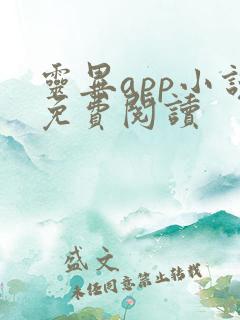 靈異app小說
免費閱讀
盛文
未經同意禁止轉載